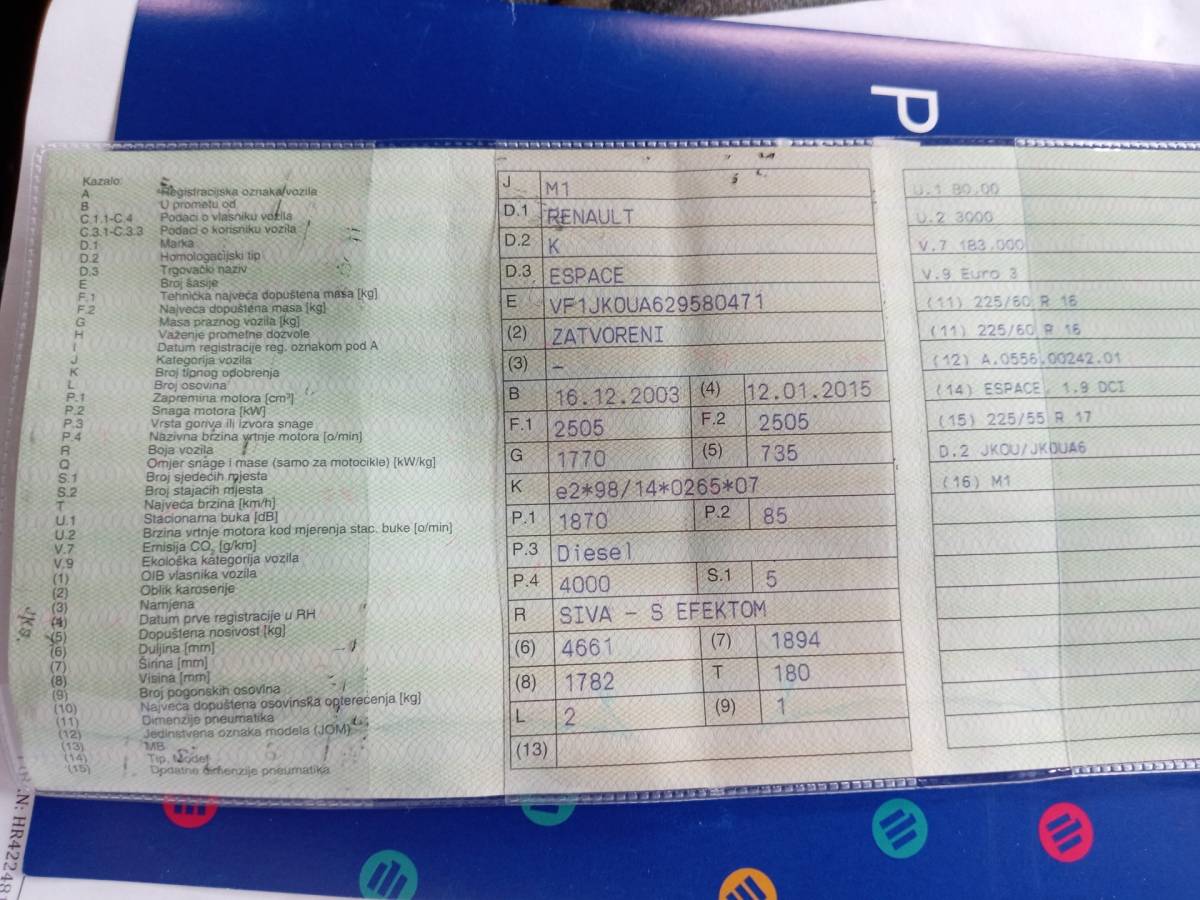 P
Kazalo:
A Registracijska oznaka vozila
B U prometu od
C.1.1-C.4 Podaci o vlasniku vozila
C.3.1-C.3.3 Podaci o korisniku vozila
D.1 Marka
D.2 Homologacijski tip
D.3 Trgovački naziv
E Broj šasije
F.1 Tehnička najveća dopuštena masa [kg]
F.2 Najveća dopuštena masa [kg]
G Masa praznog vozila [kg]
H Važenje prometne dozvole
I Datum registracije reg. oznakom pod A
J Kategorija vozila
K Broj tipnog odobrenja
L Broj osovina
P.1 Zapremina motora [cm³]
P.2 Snaga motora [kW]
P.3 Vrsta goriva ili izvora snage
P.4 Nazivna brzina vrtnje motora [o/min]
R Boja vozila
Q Omjer snage i mase (samo za motocikle) [kW/kg]
S.1 Broj sjedećih mjesta
S.2 Broj stajaćih mjesta
T Najveća brzina [km/h]
U.1 Stacionarna buka [dB]
U.2 Brzina vrtnje motora kod mjerenja stac. buke [o/min]
V.7 Emisija CO₂ [g/km]
V.9 Ekološka kategorija vozila
(1) OIB vlasnika vozila
(2) Oblik karoserije
(3) Namjena
(4) Datum prve registracije u RH
(5) Dopuštena nosivost [kg]
(6) Duljina [mm]
(7) Širina [mm]
(8) Visina [mm]
(9) Broj pogonskih osovina
(10) Najveća dopuštena osovinska opterećenja [kg]
(11) Dimenzije pneumatika
(12) Jedinstvena oznaka modela (JOM)
(13) MB
(14) Tip, Model
(15) Dodatne dimenzije pneumatika
J M1
D.1 RENAULT
D.2 K
D.3 ESPACE
E VF1JK0UA629580471
(2) ZATVORENI
(3) –
B 16.12.2003 (4) 12.01.2015
F.1 2505 F.2 2505
G 1770 (5) 735
K e2*98/14*0265*07
P.1 1870 P.2 85
P.3 Diesel
P.4 4000 S.1 5
R SIVA – S EFEKTOM
(6) 4661 (7) 1894
(8) 1782 T 180
L 2 (9) 1
(13)
U.1 80.00
U.2 3000
V.7 183.000
V.9 Euro 3
(11) 225/60 R 16
(11) 225/60 R 16
(12) A.0556.00242.01
(14) ESPACE, 1.9 DCI
(15) 225/55 R 17
D.2 JK0U/JK0UA6
(16) M1